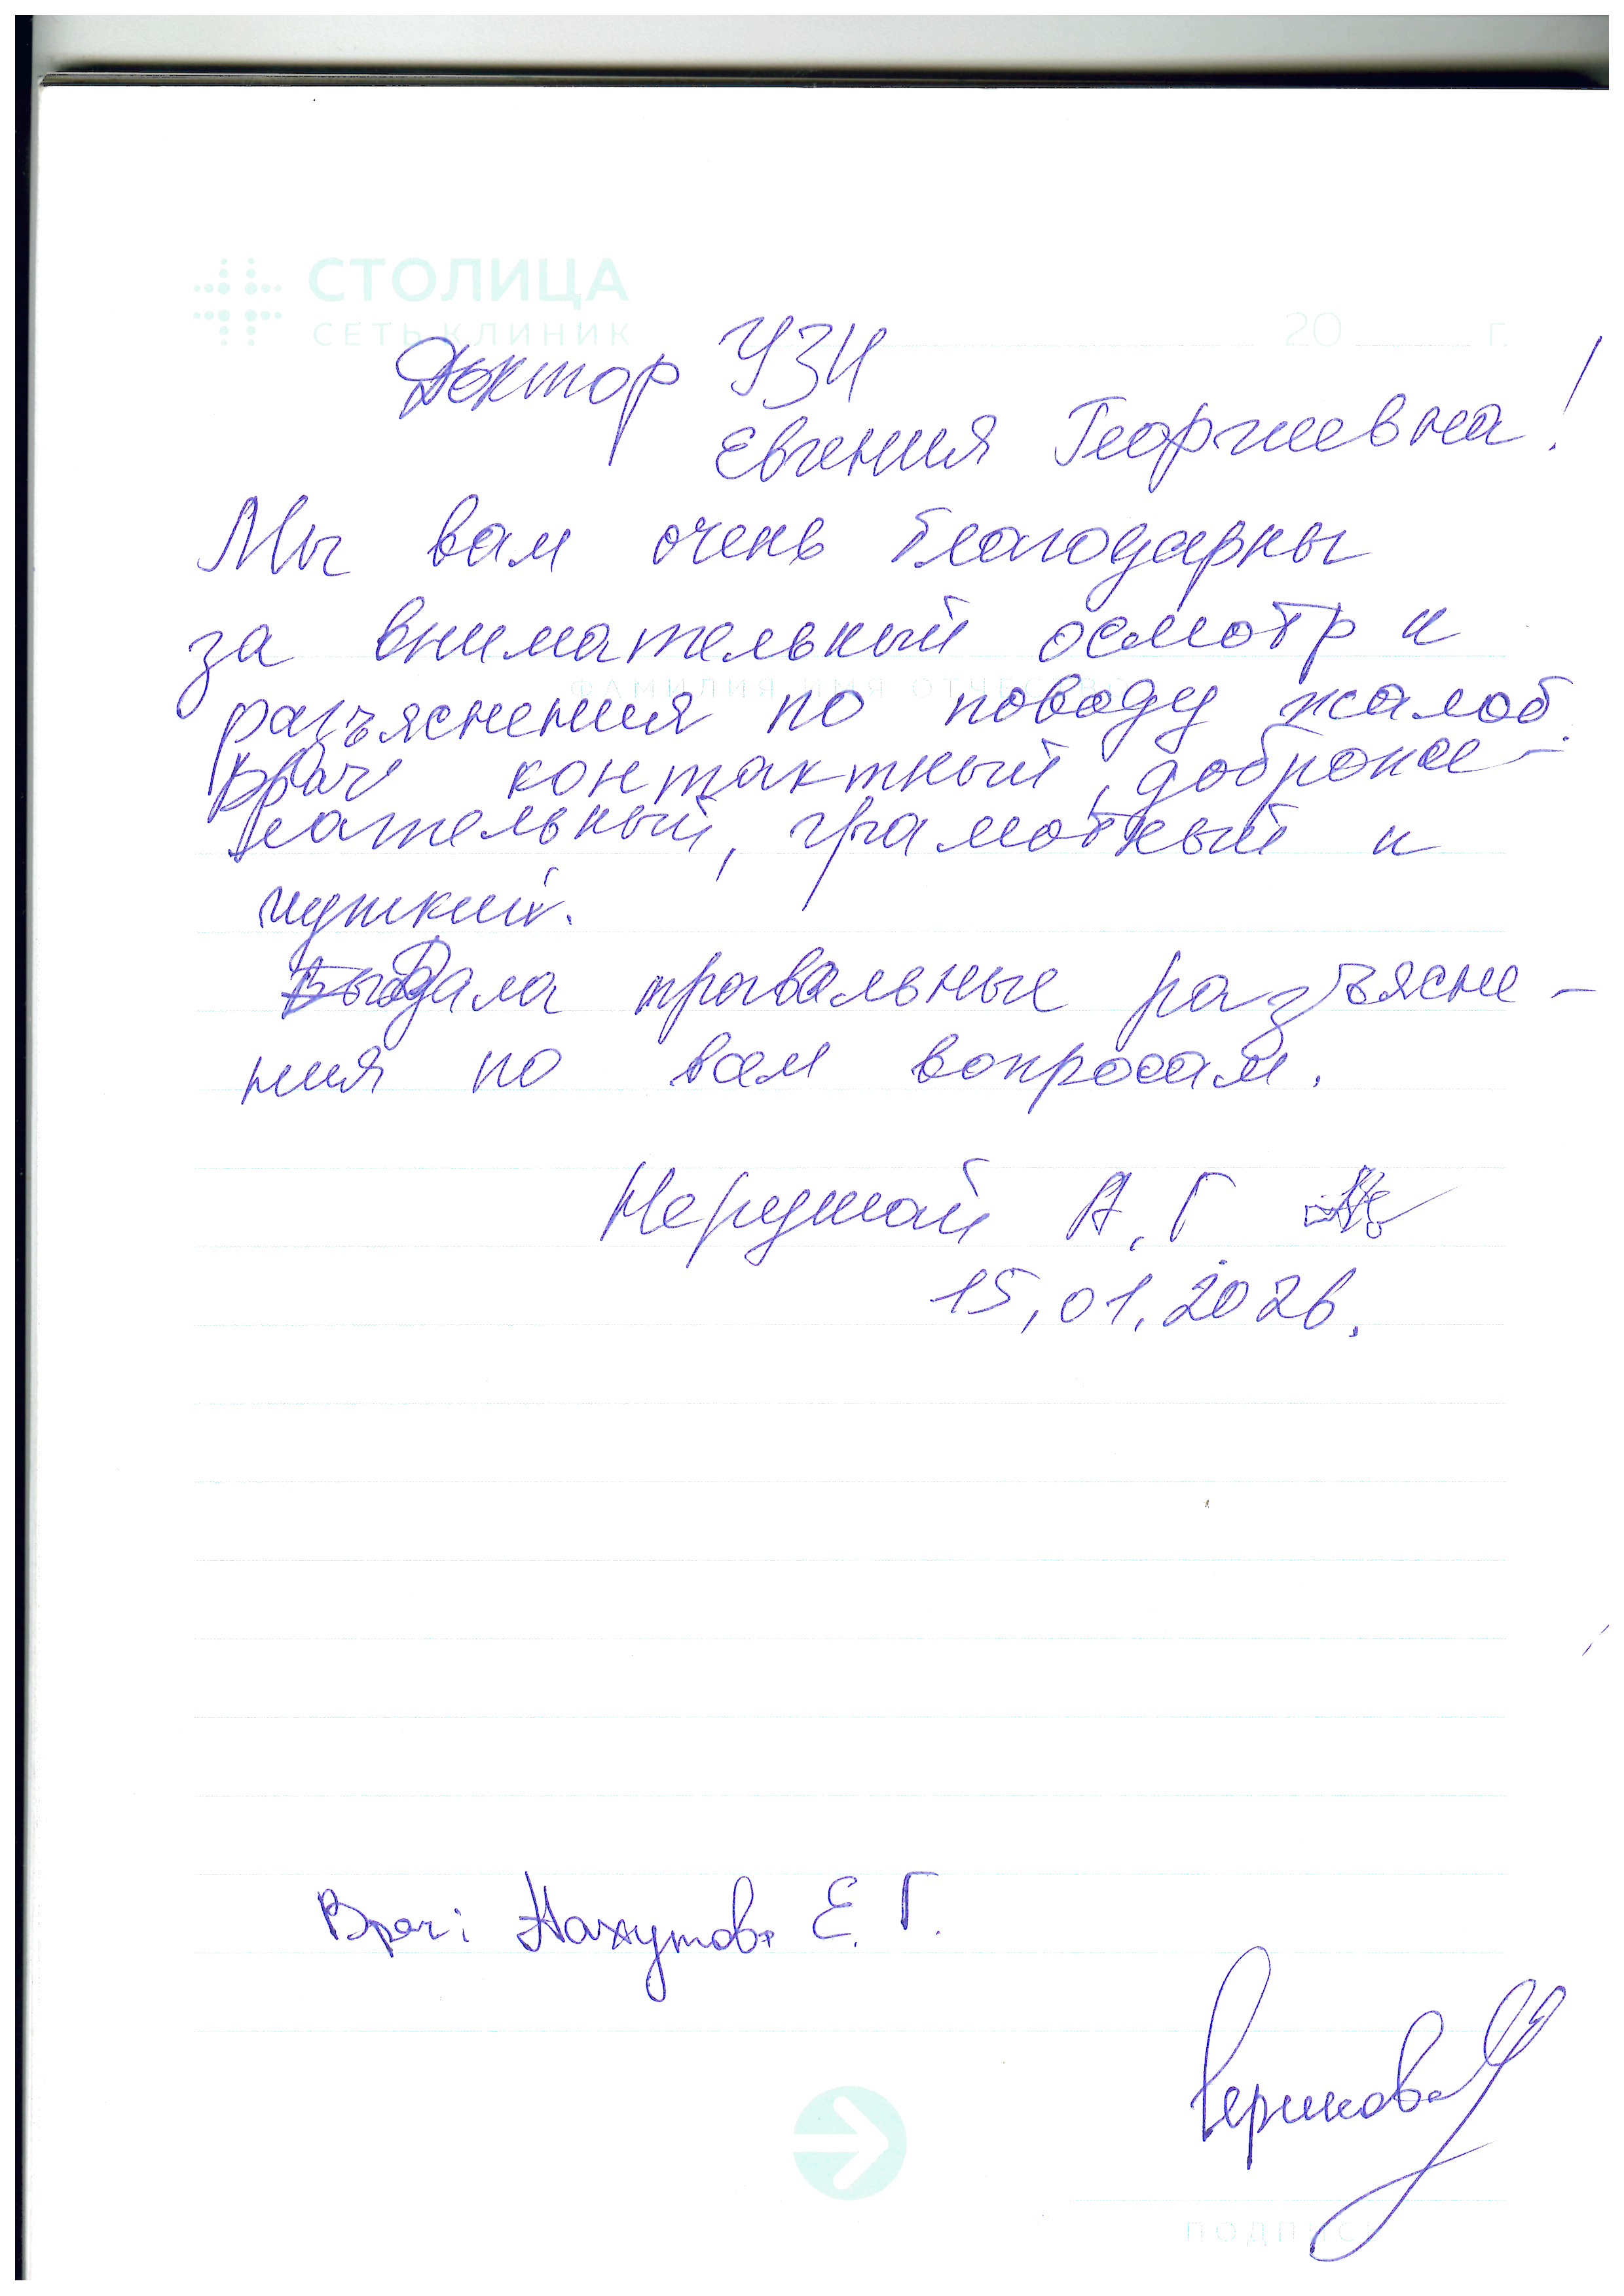 СТОЛИЦА
СЕТЬ КЛИНИК
20 г.
Доктор УЗИ
Евгения Георгиевна!
Мы вам очень благодарны
за внимательный осмотр и
ФАМИЛИЯ ИМЯ ОТЧЕСТВО
разъяснения по поводу жалоб.
Врач контактный, доброже-
лательный, грамотный и
чуткий.
Дала правильные разъясне-
ния по всем вопросам.
А.Г.
15.01.2026.
Врач: Е.Г.
ПОДПИСЬ